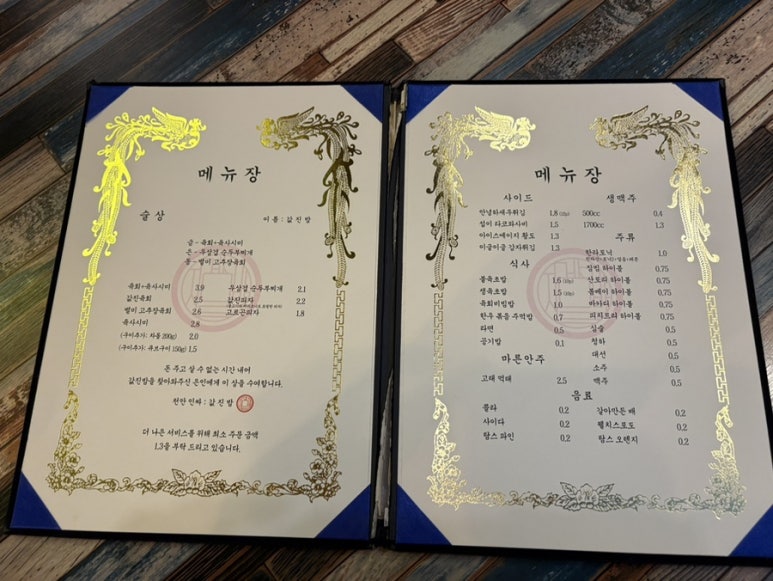 메뉴장
술상
이름 : 값진밤
금 - 육회+육사시미
은 - 우삼겹 순두부찌개
동 - 별미 고추장육회
육회+육사시미 3.9
값진육회 2.5
별미 고추장육회 2.6
육사시미 2.8
(구이추가: 차돌 200g) 2.0
(구이추가: 큐브구이 150g) 1.5
우삼겹 순두부찌개 2.1
값진피자 2.2
고르곤피자 1.8
돈 주고 살 수 없는 시간 내어
값진밤을 찾아와주신 은인에게 이 상을 수여합니다.
천만인싸 : 값진밤
더 나은 서비스를 위해 최소 주문 금액
1.3을 부탁 드리고 있습니다.
메뉴장
사이드
안녕하새우튀김 1.8 (12p)
썸이 타코와사비 1.5
아이스에이지 황도 1.3
이글이글 감자튀김 1.3
식사
불육초밥 1.6 (10p)
생육초밥 1.5 (10p)
육회비빔밥 1.0
한우 볶음 주먹밥 0.7
라면 0.5
공기밥 0.1
마른안주
고래 먹태 2.5
생맥주
500cc 0.4
1700cc 1.3
주류
한라토닉 1.0
짐빔 하이볼 0.75
산토리 하이볼 0.75
봄베이 하이볼 0.75
바카디 하이볼 0.75
피치트리 하이볼 0.75
진로 0.5
청하 0.5
대선 0.5
소주 0.5
맥주 0.5
음료
콜라 0.2
사이다 0.2
탐스 파인 0.2
갈아만든 배 0.2
웰치스포도 0.2
탐스 오렌지 0.2